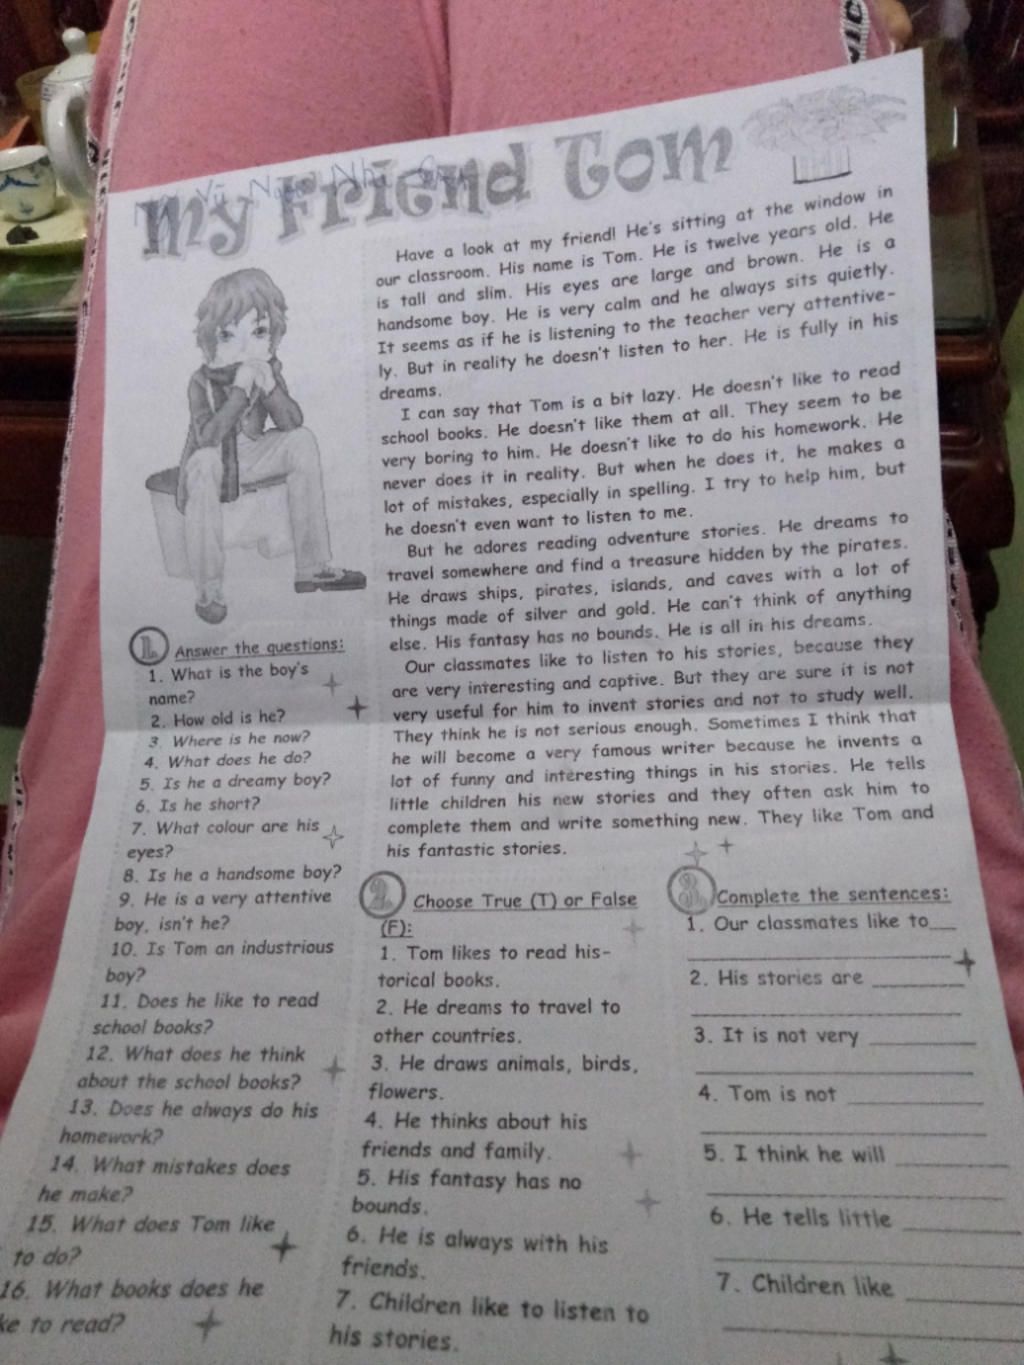 My Friend Tom
Vũ
Have a look at my friend! He's sitting at the window in
our classroom. His name is Tom. He is twelve years old. He
is tall and slim. His eyes are large and brown. He is a
handsome boy. He is very calm and he always sits quietly.
It seems as if he is listening to the teacher very attentive-
ly. But in reality he doesn't listen to her. He is fully in his
dreams.
I can say that Tom is a bit lazy. He doesn't like to read
school books. He doesn't like them at all. They seem to be
very boring to him. He doesn't like to do his homework. He
never does it in reality. But when he does it, he makes a
lot of mistakes, especially in spelling. I try to help him, but
he doesn't even want to listen to me.
But he adores reading adventure stories. He dreams to
travel somewhere and find a treasure hidden by the pirates.
He draws ships, pirates, islands, and caves with a lot of
things made of silver and gold. He can't think of anything
else. His fantasy has no bounds. He is all in his dreams.
Our classmates like to listen to his stories, because they
are very interesting and captive. But they are sure it is not
very useful for him to invent stories and not to study well.
They think he is not serious enough. Sometimes I think that
he will become a very famous writer because he invents a
lot of funny and interesting things in his stories. He tells
little children his new stories and they often ask him to
complete them and write something new. They like Tom and
his fantastic stories.
1. Answer the questions:
1. What is the boy's
name?
2. How old is he?
3. Where is he now?
4. What does he do?
5. Is he a dreamy boy?
6. Is he short?
7. What colour are his
eyes?
8. Is he a handsome boy?
9. He is a very attentive
boy, isn't he?
10. Is Tom an industrious
boy?
11. Does he like to read
school books?
12. What does he think
about the school books?
13. Does he always do his
homework?
14. What mistakes does
he make?
15. What does Tom like
to do?
16. What books does he
ke to read?
2. Choose True (T) or False
(F):
1. Tom likes to read his-
torical books.
2. He dreams to travel to
other countries.
3. He draws animals, birds,
flowers.
4. He thinks about his
friends and family.
5. His fantasy has no
bounds.
6. He is always with his
friends.
7. Children like to listen to
his stories.
3. Complete the sentences:
1. Our classmates like to___
2. His stories are ________
3. It is not very ________
4. Tom is not ________
5. I think he will ________
6. He tells little ________
7. Children like ________